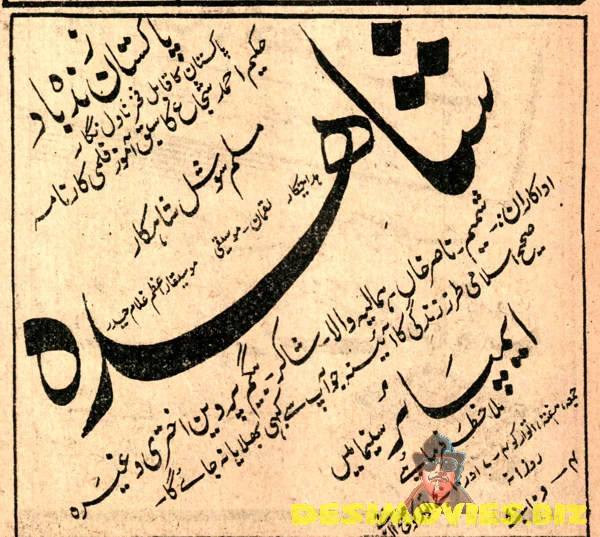 پاکستان زندہ باد
پاکستان کا قابل فخر ناول نگار
حکیم احمد شجاع کا سبق آموز فلمی کارنامہ
مسلم سوشل شاہکار
شاہدہ
ہدایتکار لقمان - موسیقی موسیقار اعظم غلام حیدر
اداکاران:- شمیم - ناصر خاں - ہمالیہ والا - شاکر - بیگم پروین - اختری وغیرہ
صحیح اسلامی طرز زندگی کا آئینہ جو آپ سے کبھی بھلایا نہ جائے گا -
ایمپائر سینما میں
ملاحظہ فرمایئے
جمعہ، ہفتہ، اتوار کو
روزانہ
DESIMOVIES.BIZ